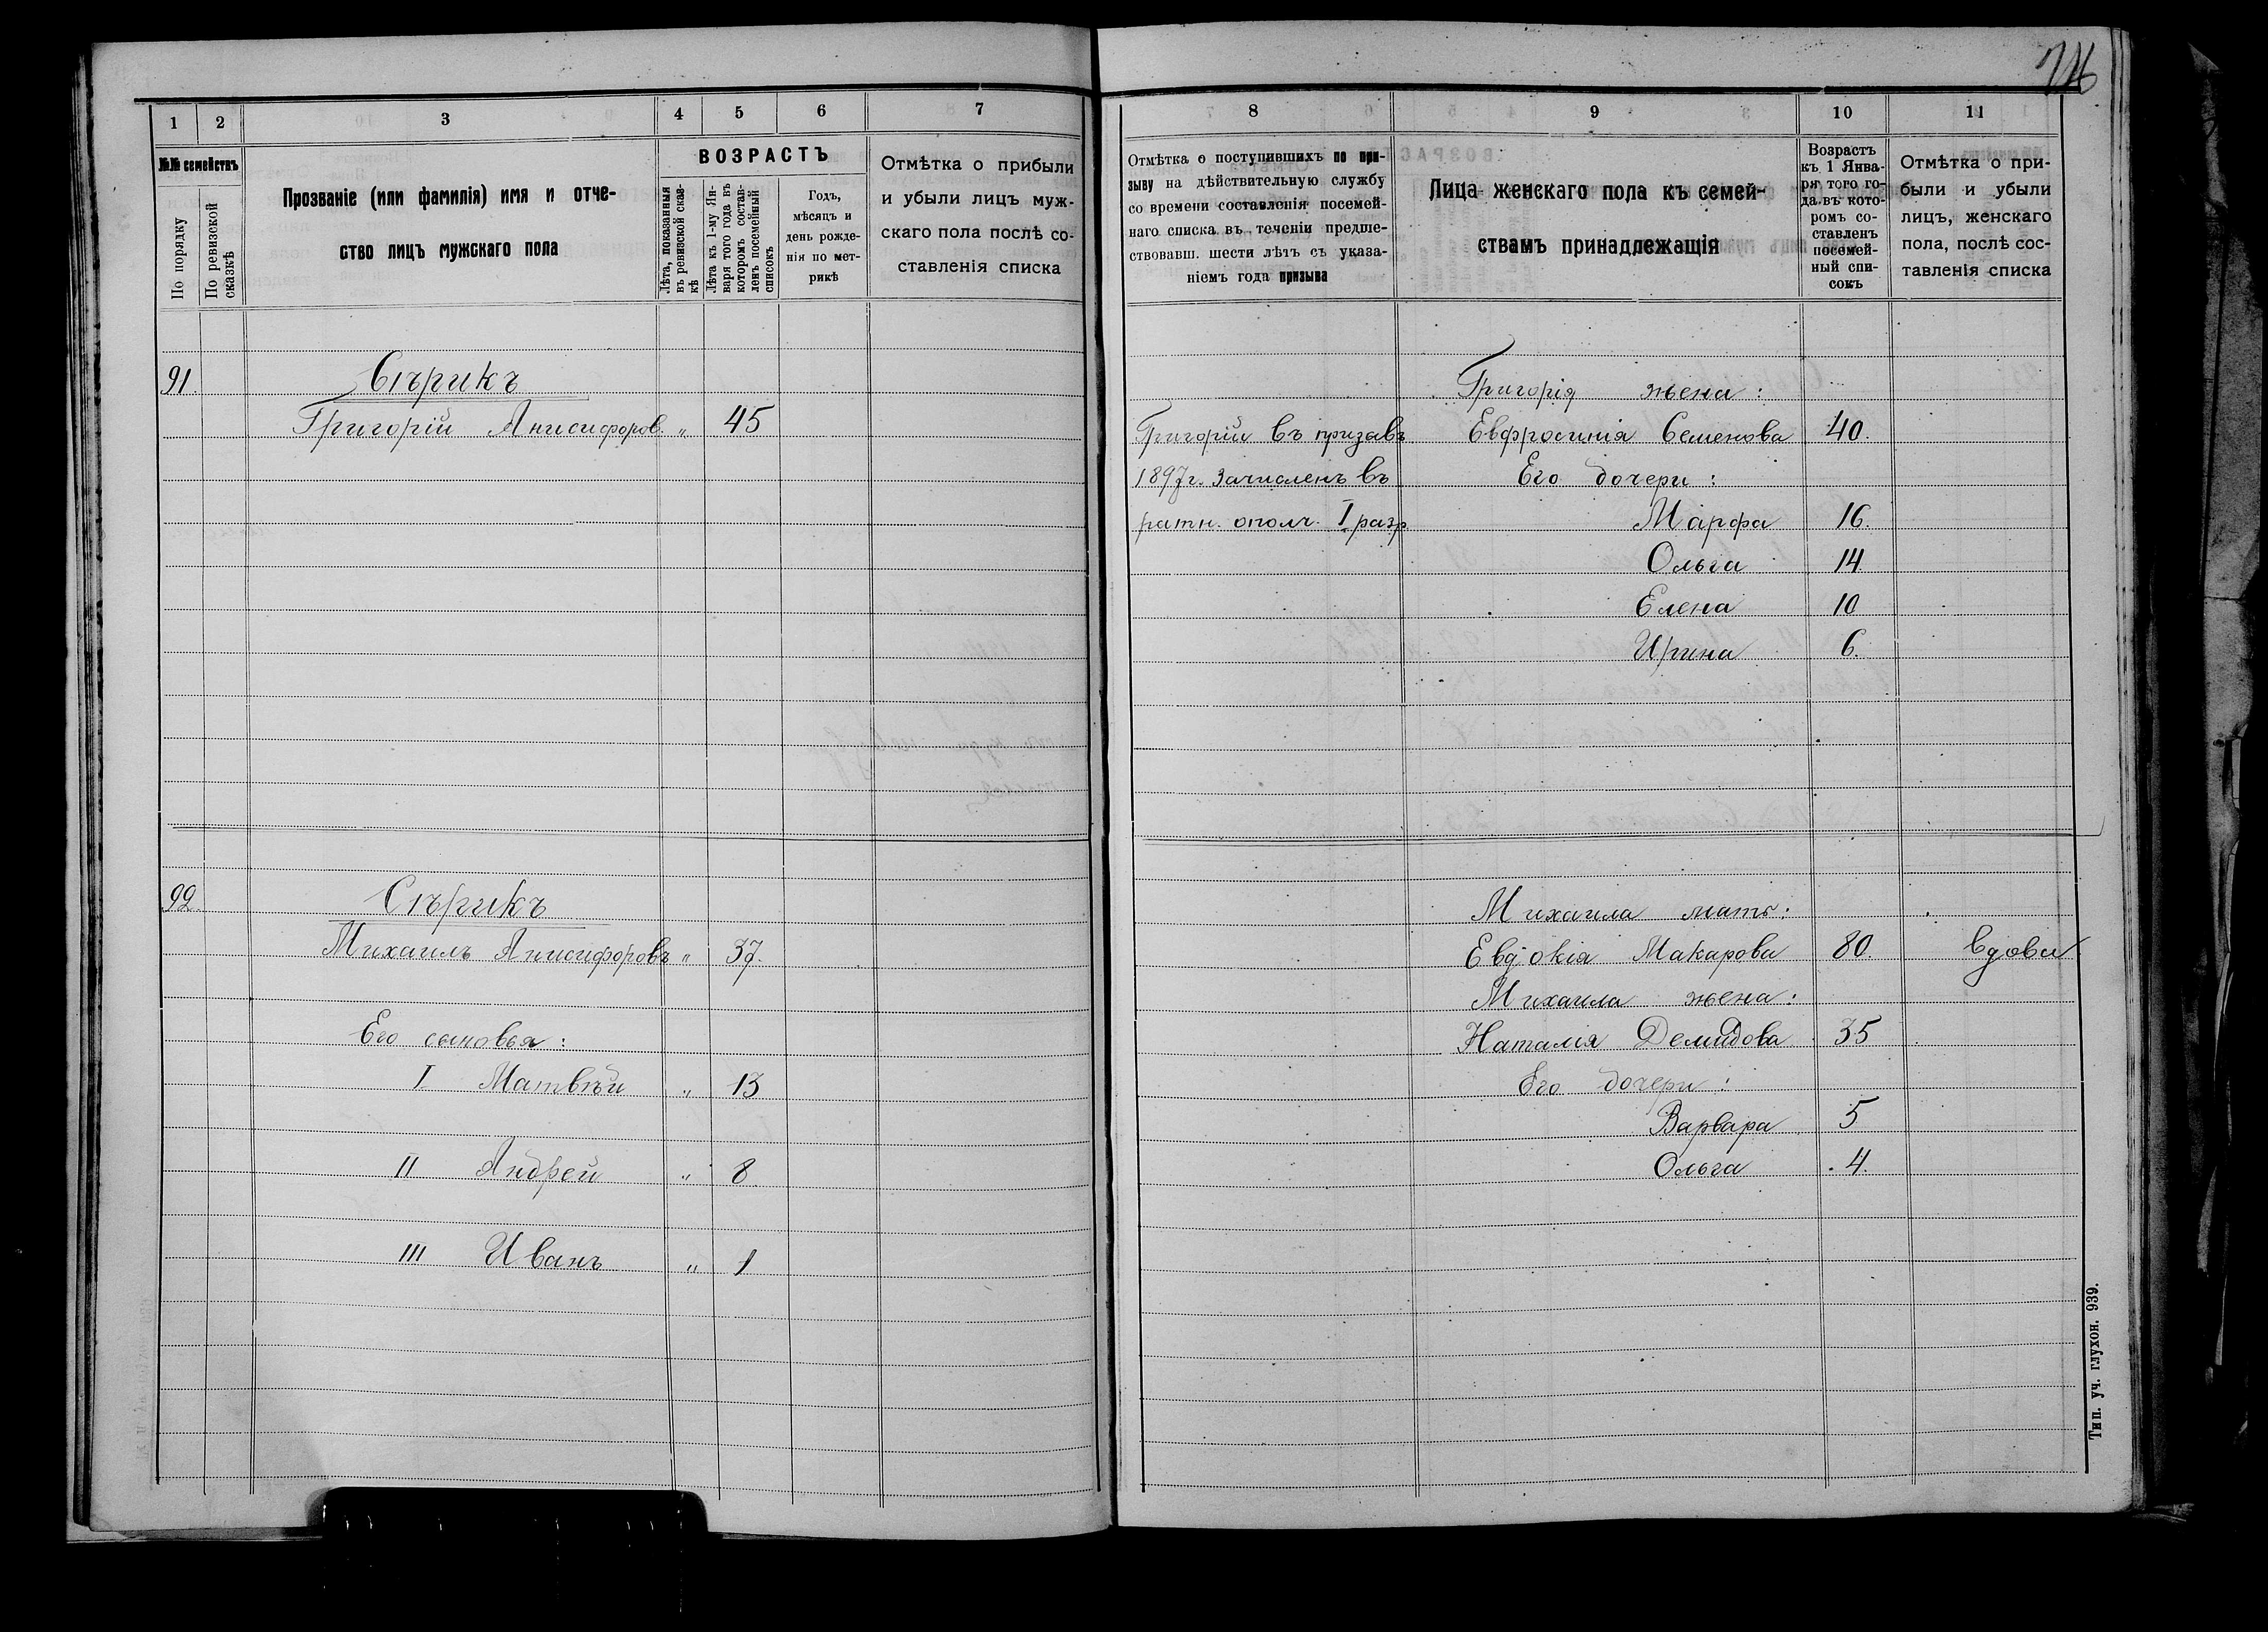 746
1
2
3
4
5
6
7
№№ семействъ
По порядку
По ревизской сказкѣ
Прозваніе (или фамилія) имя и отче-
ство лицъ мужскаго пола
ВОЗРАСТЪ
Лѣта, показанныя
въ ревизской сказ-
кѣ
Лѣта къ 1-му Ян-
варя того года въ
которомъ состав-
ленъ посемейный
списокъ
Годъ,
мѣсяцъ и
день рожде-
нія по мет-
рикѣ
Отмѣтка о прибыли
и убыли лицъ муж-
скаго пола послѣ со-
ставленія списка
91.
Сѣрикъ
Григорій Анисифоров. „ 45
92.
Сѣрикъ
Михаилъ Анисифоровъ „ 37.
Его сыновья:
I Матвѣй „ 13
II Андрей „ 8
III Иванъ „ 1
8
9
10
11
Отмѣтка о поступившихъ по при-
зыву на дѣйствительную службу
со времени составленія посемей-
наго списка въ теченіи предше-
ствовавш. шести лѣтъ съ указа-
ніемъ года призыва
Лица женскаго пола къ семей-
ствамъ принадлежащія
Возрастъ
къ 1 Янва-
ря того го-
да въ кото-
ромъ со-
ставленъ
посемей-
ный спи-
сокъ
Отмѣтка о при-
были и убыли
лицъ, женскаго
пола, послѣ сос-
тавленія списка
Григорія жена:
Григорій въ призывъ Евфросинія Семенова 40.
1897г. зачисленъ въ Его дочери:
ратн. ополч. I разр Марфа 16.
Ольга 14.
Елена 10
Ирина 6.
Михаила мать:
Евдокія Макарова 80. вдова
Михаила жена:
Наталія Демидова 35
Его дочери:
Варвара 5
Ольга 4.
Тип. уч. глухон. 939.